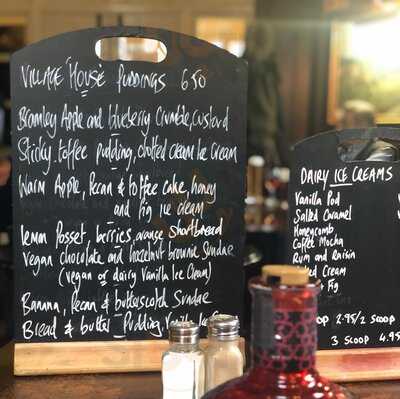 Village House Puddings 650
Bramley Apple and blueberry Crumble, custard
Sticky toffee pudding, clotted cream Ice Cream
Warm Apple, Pecan & toffee cake, honey
and fig ice cream
Lemon Posset berries, orange Shortbread
Vegan chocolate and hazelnut brownie Sundae
(vegan or dairy Vanilla Ice Cream)
Banana, Pecan & butterscotch Sundae
Bread & butter Pudding, Vanilla Ice
DAIRY ICE CREAMS
Vanilla Pod
Salted Caramel
Honeycomb
Coffee Mocha
Rum and Raisin
Cream
Fig
2.95/2 Scoop
3 Scoop 4.95